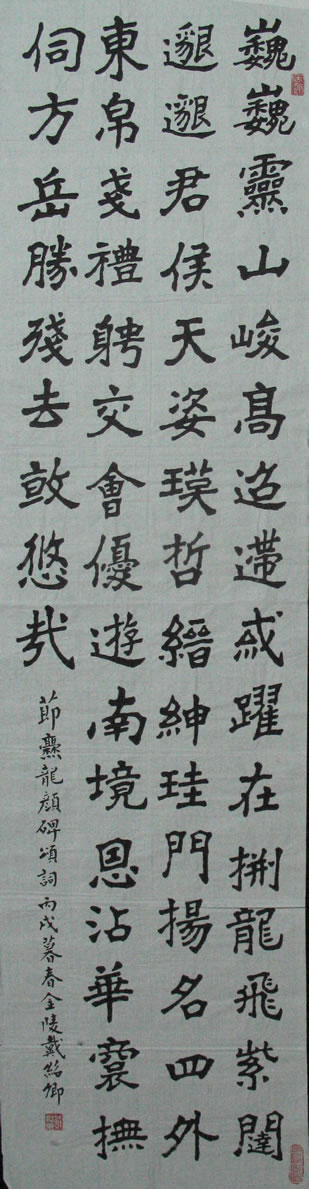 巍巍靈山峻高迢遰或躍在捌龍飛紫闥
邈邈君侯天姿瑛哲縉紳珪門揚名四外
束帛戔禮聘交會優遊南境恩沾華裔撫
伺方岳勝殘去敚悠哉
節爨龍顏碑頌詞丙戌暮春金陵戴紹卿